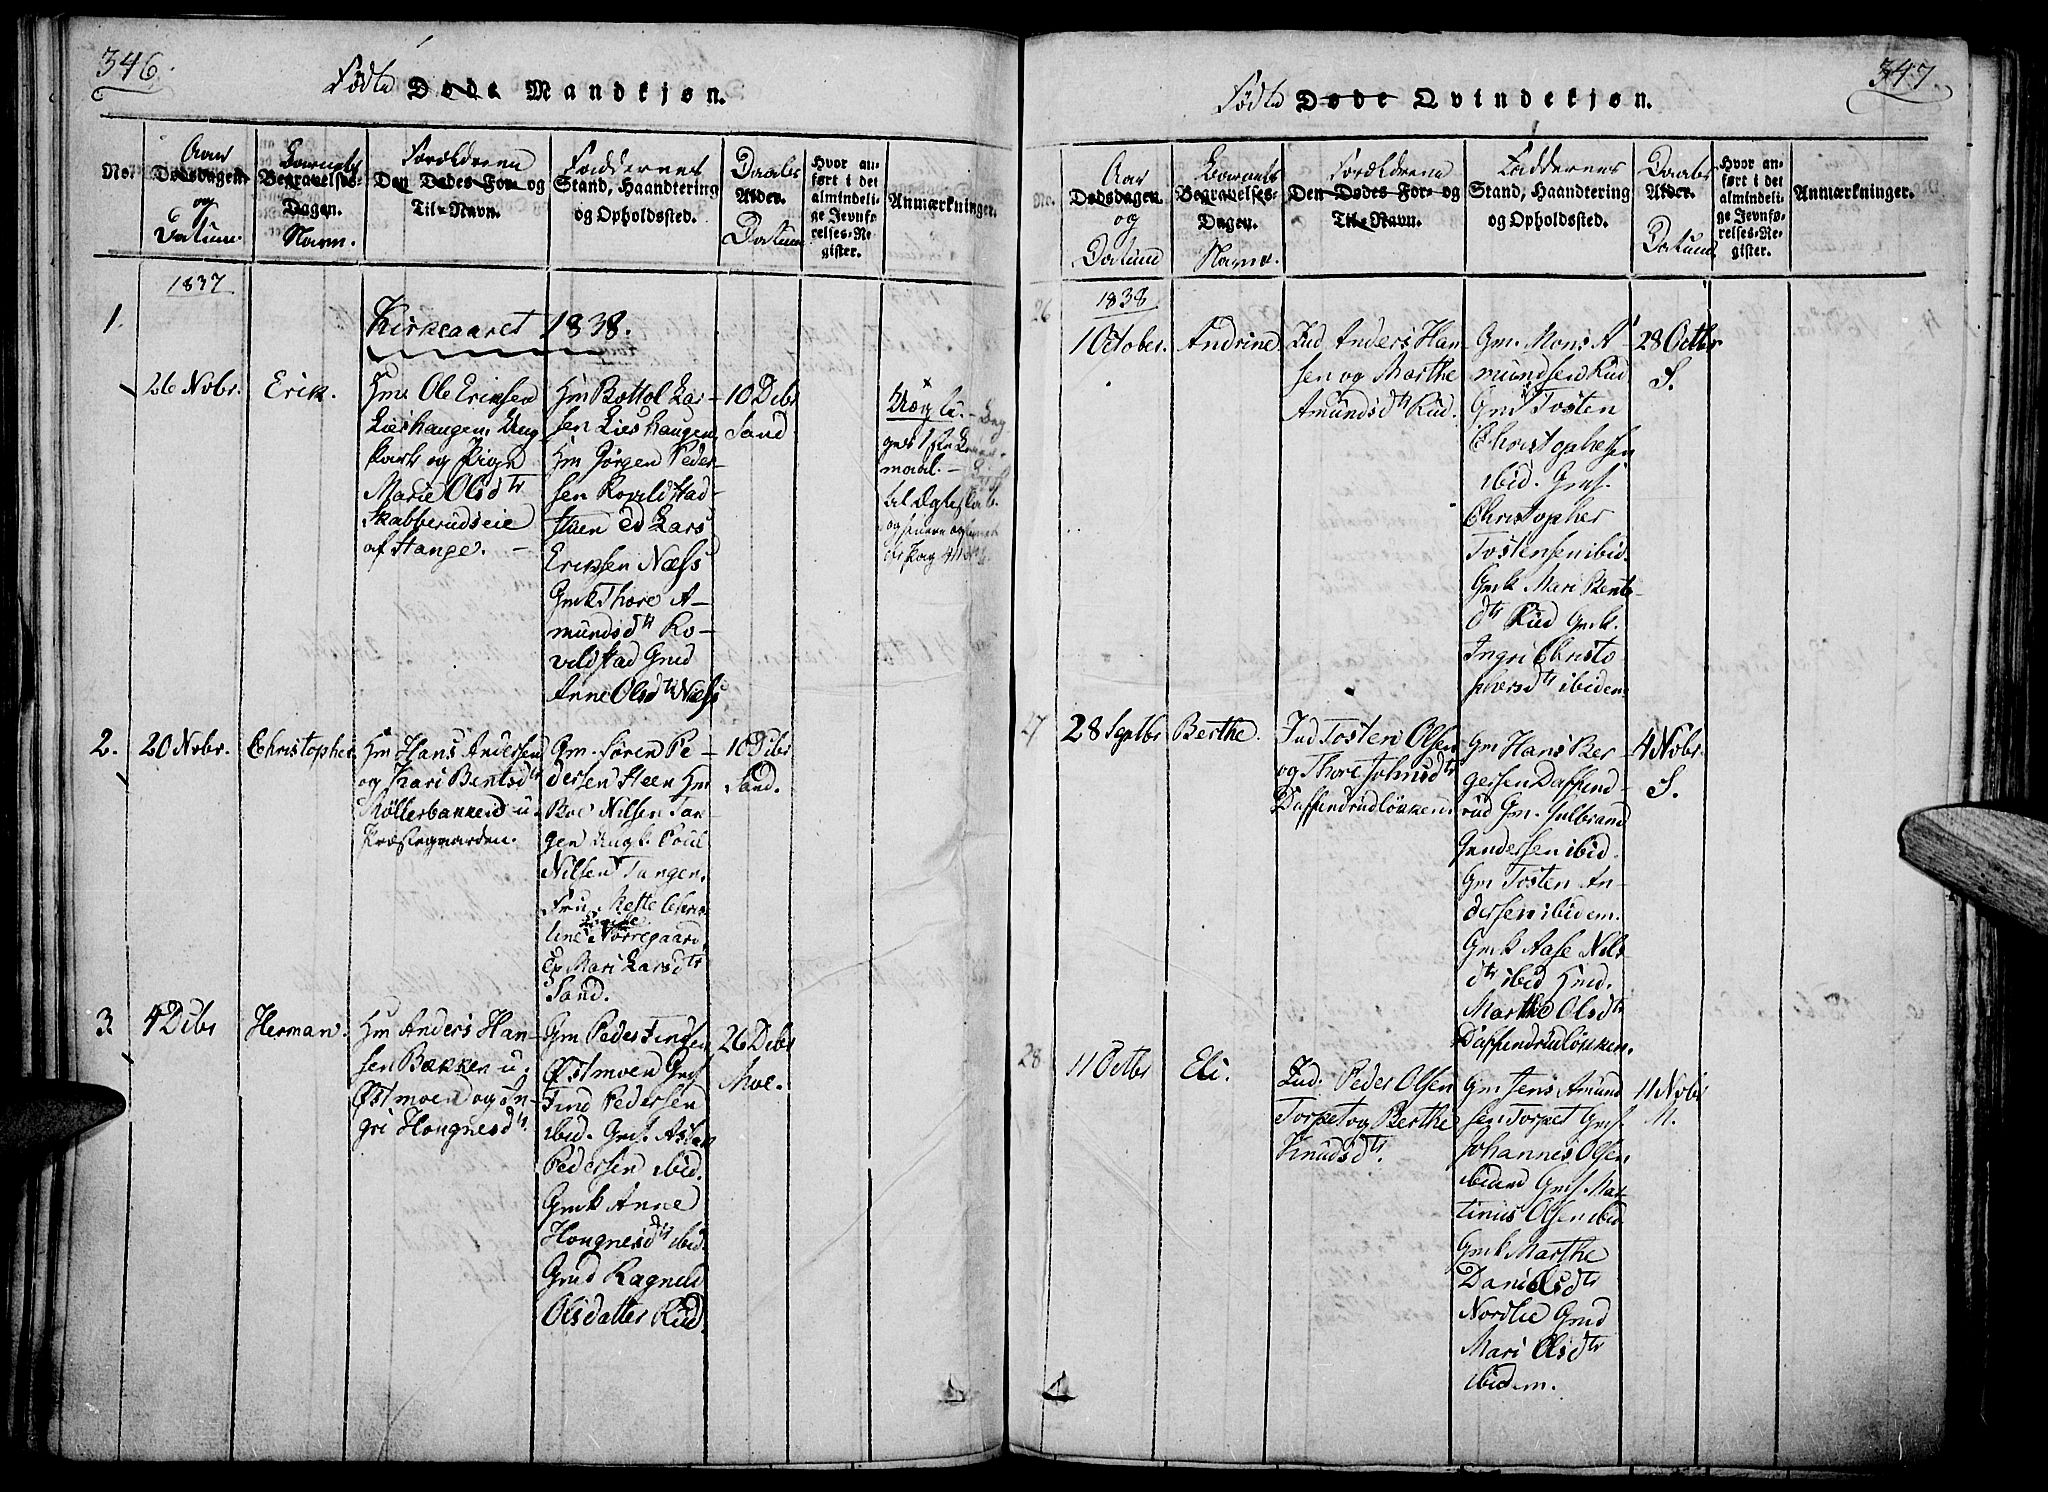 346.
Fødte Døde Mandkjøn.
No.
Aar
Dødsdagen
og
Datum.
Barnets
Begravelses-
Dagen.
Navn.
Forældrene
Den Dødes For- og
Til-Navn.
Faddernes
Stand, Haandtering
og Opholdssted.
Daabs
Alder.
Datum
Hvor an-
ført i det
almindeli-
ge Jevnfø-
relses-Re-
gister.
Anmærkninger.
1837
1.
Kirkeaaret 1838.
26 Novbr.
Erik.
Hm Ole Eriksen
Lieshaugen, Ung-
kark og Pigen
Marie Olsdtr
Skabberudseie
af Stange. -
Hm Bottol Lar-
sen Lieshaugen
Hm Jørgen Peder-
sen Rovelstad-
steen Ed Lars
Eriksen Næss
Gmk Thore A-
mundsdtr Ro-
velstad Gud
Anne Olsdtr Næss
10 Dcbr
Sand.
Uægte.
2.
20 Novbr.
Christopher.
Hm Hans Andersen
og Kari Bentsdtr
Møllerbakken u.
Præstegaarden.
Gm. Søren Pe-
dersen Steen Hm
Boe Nilsen Tan-
gen Ungk. Poul
Nilsen Tangen.
Fru Mette Chris-
tine Nørregaard,
Ep Mari Larsdtr
Sand.
10 Dcbr
Sand.
3.
4 Dcbr
Herman.
Hm Anders Han-
sen Bækken u.
Østmoen og In-
gri Hougnesdtr.
Gm Peder Findsen
Østmoen Gms
Find Pedersen
ibid. Gms. Aslak
Pedersen ibid.
Gmk Anne
Hougnesdtr ibid.
Gmd Ragnild
Olsdatter Rud.
26 Dcbr
Moe.
347.
Fødte Døde Qvindekjøn.
No.
Aar
Dødsdagen
og
Datum
Barnets
Begravelses-
Dagen.
Navn.
Forældrene
Den Dødes For- og
Til-Navn.
Faddernes
Stand, Haandtering
og Opholdssted.
Daabs
Alder.
Datum
Hvor an-
ført i det
almindeli-
ge Jevnfø-
relses-Re-
gister.
Anmærkninger.
26
1838
1 October.
Andrine
Ind Anders Han-
sen og Marthe
Amundsdtr Rud.
Gm. Mons A-
mundsen Rud
Gm Tosten
Christophersen
ibid. Gms.
Christopher
Tostensen ibid.
Gmk Mari Bents-
dtr Rud Gmk.
Ingri Christo-
phersdtr ibidem
28 Octbr
S.
27
28 Septbr
Berthe.
Ind Tosten Olsen
og Thore Johnsdtr
Daffendrudløkken.
Gm Hans Ber-
gersen Daffend-
rud Gm. Gulbrand
Gundersen ibid.
Gm Tosten An-
dersen ibidem.
Gmk Aase Nils-
dtr ibid Hmd.
Marthe Olsdtr
Daffendrudløkken.
4 Novbr
S.
28
11 Octbr
Eli.
Ind. Peder Olsen
Torpet og Berthe
Knudsdtr.
Gm Jens Amund-
sen Torpet Gms.
Johannes Olsen
ibidem Gms. Mar-
tinus Olsen ibid
Gmk Marthe
Danielsdtr
Nordlie Gmd
Mari Olsdtr
ibidem.
11 Novbr
M.